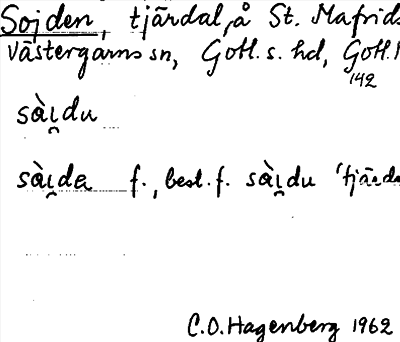 Sojden, tjärdal, å St. Mafrids
Västergarns sn, Gotl. s. hd, Gotl.
142
sàı̯du
sàı̯de f., best. f. sàı̯du 'tjärda
C.O. Hagenberg 1962